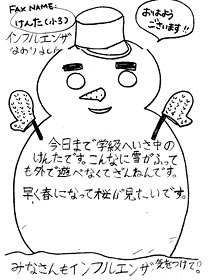 FAX NAME:
けんた(小3)
インフルエンザ
なおりました
おはよう
ございます!!
今日まで学級へいさ中の
けんたです。こんなに雪がふって
も外で遊べなくてざんねんです。
早く春になって桜が見たいです。
みなさんもインフルエンザ気をつけて!!